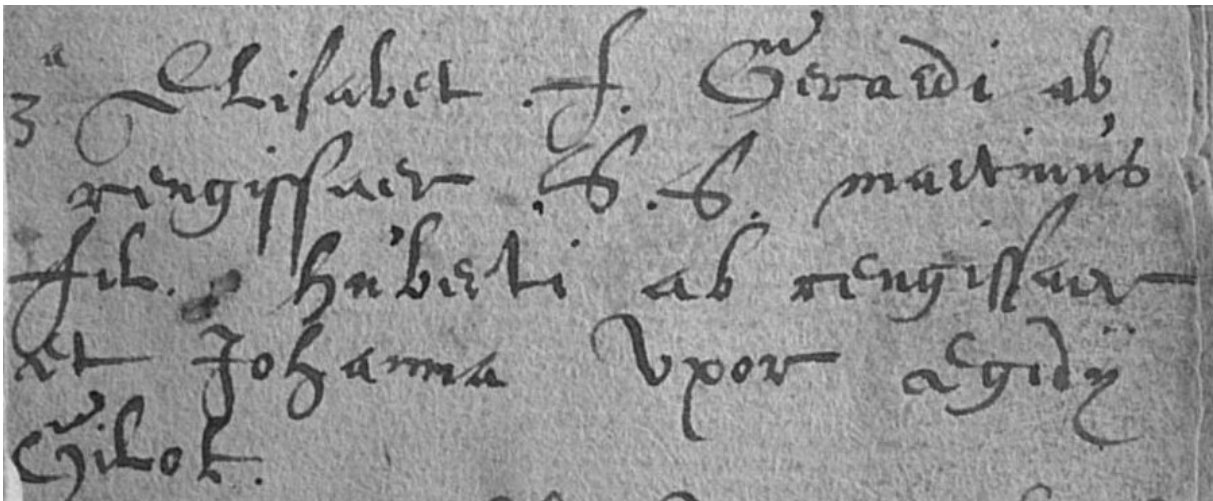 3ᵃ Elisabet .f. Gerardi ab
rengissaer .S.S. martinus
fil. Huberti ab rengissaer
et Johanna Vxor Egidÿ
Gilot.